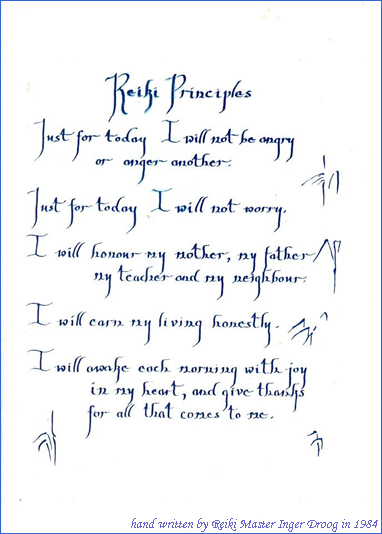 Reiki Principles
Just for today I will not be angry
or anger another.
Just for today I will not worry.
I will honour my mother, my father
my teacher and my neighbour.
I will earn my living honestly.
I will awake each morning with joy
in my heart, and give thanks
for all that comes to me.
hand written by Reiki Master Inger Droog in 1984